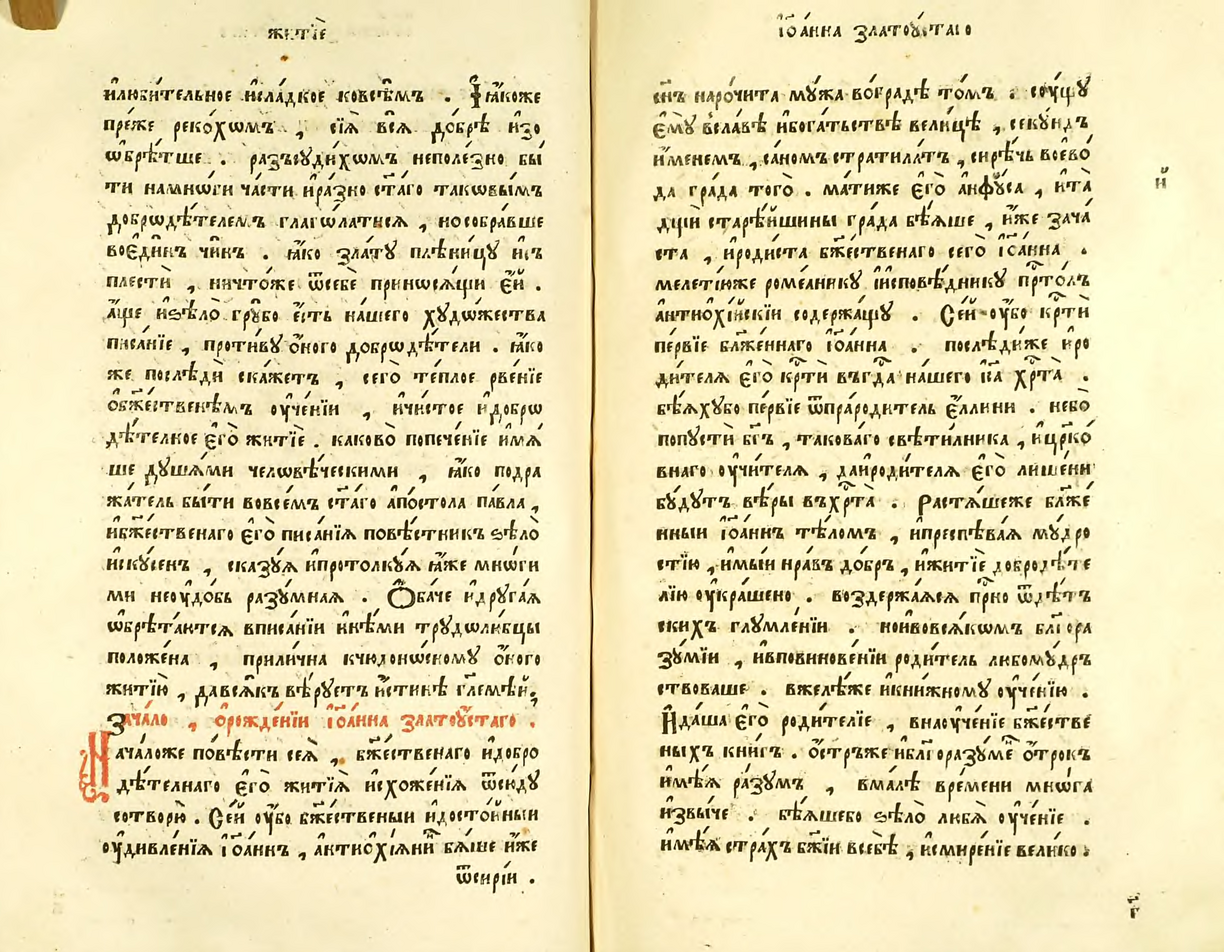 житїе
илюбительное исла́дкое ковсѣ́мъ . І҆ ꙗ҆́коже
пре́же реко́хомъ , сїѧ̀ всѧ̀ до́брѣ и҆зо
ѡ҆брѣ́тше . разъсꙋди́хомъ неполе́зно бы́
ти намно́ги ча́сти и҆ра́зно ст҃а́го такѡвы́мъ
добрѡдѣ́телемъ глаго́латисѧ , нособра́вше
вое҆ди́нъ чи́нъ . ꙗ҆́ко зла́тꙋ плѣни́цꙋ и҆съ
плестѝ , ничто́же ѿсебѐ принѡсѧ́щи є҆́й .
а҆́ще иѕѣлѡ̀ грꙋ́бо є҆́сть на́шего хꙋдо́жества
писа́нїе , проти́вꙋ о҆́ного добрѡдѣ́тели . ꙗ҆́ко
же послѣдѝ ска́жетъ , сегѡ̀ те́плое рве́нїе
ѻ҆бж҃е́ственѣмъ ᲂу҆че́нїи , и҆чи́стое и҆добрѡ
дѣ́телное є҆гѡ̀ житїѐ . каково̀ попече́нїе и҆мѧ́
ше дꙋша́ми челѡвѣ́ческими , ꙗ҆́ко подра
жа́тель бы́ти вовсе́мъ ст҃а́го а҆по́стола па́вла ,
ибж҃е́ственаго є҆гѡ̀ писа́нїѧ повѣ́стникъ ѕѣлѡ̀
и҆скꙋ́сенъ , сказꙋ́ѧ и҆протолкꙋ́ѧ ꙗ҆́же мно́ги
ми неᲂу҆до́бь разꙋ́мнаѧ . Ѻ҆ба́че и҆дрꙋга́ѧ
ѡ҆брѣта́ютсѧ вписа́нїи и҆нѣ́ми трꙋдолю́бцы
поло́жена , прили́чна кчюдо́нѡскомꙋ о҆́ного
житїю̀ , давсѧ́къ вѣ́рꙋетъ и҆́стинѣ гл҃е́мѣй,
Зача́ло , ѻ҆рожде́нїи і҆ѡа́нна златоꙋ́стаго .
Нача́ложе по́вѣсти сеѧ̀ , бж҃е́ственаго и҆добро
дѣ́телнаго є҆гѡ̀ житїѧ̀ и҆схоже́нїѧ ѿсю́дꙋ
сотворю̀ . Се́й ᲂу҆́бо бж҃е́ственый и҆досто́йный
ᲂу҆дивле́нїѧ і҆ѡа́ннъ , а҆нтиохі́ѧнинъ бѧ́ше и҆́же
ѿсирі́и .
і҆ѡа́нна златоꙋ́стаго
сн҃ъ нарочи́та мꙋ́жа вогра́дѣ то́мъ : сꙋ́щꙋ
є҆мꙋ̀ всла́вѣ и҆бога́тьствѣ вели́цѣ , секꙋ́ндъ
и҆́менемъ , са́номъ стратила́тъ , си́рѣчь воево́
да гра́да того̀ . ма́тиже є҆гѡ̀ а҆нфꙋ́са , и҆та̀
дщѝ старѣ́йшины гра́да бѣ́ѧше , и҆́же зача́
ста , и҆роди́ста бж҃е́ственаго сего̀ і҆ѡа́нна .
меле́тїюже роме́аникꙋ и҆исповѣ́дникꙋ прⷭ҇то́лъ
антиохі́йскїй содержа́щꙋ . Се́й ᲂу҆́бо крⷭ҇тѝ
пе́рвїе бл҃же́ннаго і҆ѡа́нна . послѣди́же и҆ро
ди́телѧ є҆гѡ̀ крⷭ҇тѝ въг҃да на́шего і҆с҃а хрⷭ҇та̀ .
бѣ́ѧхꙋбо пе́рвїе ѿпрароди́тель є҆́ллини . небо̀
попꙋстѝ бг҃ъ , такова́го свѣти́лника , и҆цр҃ко́
внаго ᲂу҆чи́телѧ , даи҆роди́телѧ є҆гѡ̀ лише́ни
бꙋ́дꙋтъ вѣ́ры въхрⷭ҇та̀ . Растѧ́шеже бл҃же́
нный і҆ѡа́ннъ тѣ́ломъ , и҆преспѣва́ѧ мꙋ́дро
стїю , и҆мы́и нра́въ до́бръ , и҆житїѐ добродѣ́те
лїю ᲂу҆кра́шено . воздержа́ѧсѧ прⷭ҇но ѿдѣ́тъ
скихъ глꙋмле́нїи . ноивовсѧ́комъ бл҃гора
зꙋ́мїи , и҆вповинове́нїи роди́тель любомꙋ́дръ
ствоваше . вжелѣ́же и҆кни́жномꙋ ᲂу҆че́нїю .
И҆да́ша є҆гѡ̀ роди́телїе , внаᲂу҆че́нїе бж҃е́стве
ныхъ кни́гъ . о҆́стръже и҆бл҃горазꙋ́менъ о҆́трокъ
и҆мѣ́ѧ ра́зꙋмъ , вма́лѣ вре́мени мно́га
и҆звы́че . бѣ́ѧшебо ѕѣлѡ̀ любѧ̀ ᲂу҆че́нїе .
и҆мѣ́ѧ стра́хъ бж҃їи всебѣ̀ , и҆смире́нїе вели́ко .
и҃
г҃